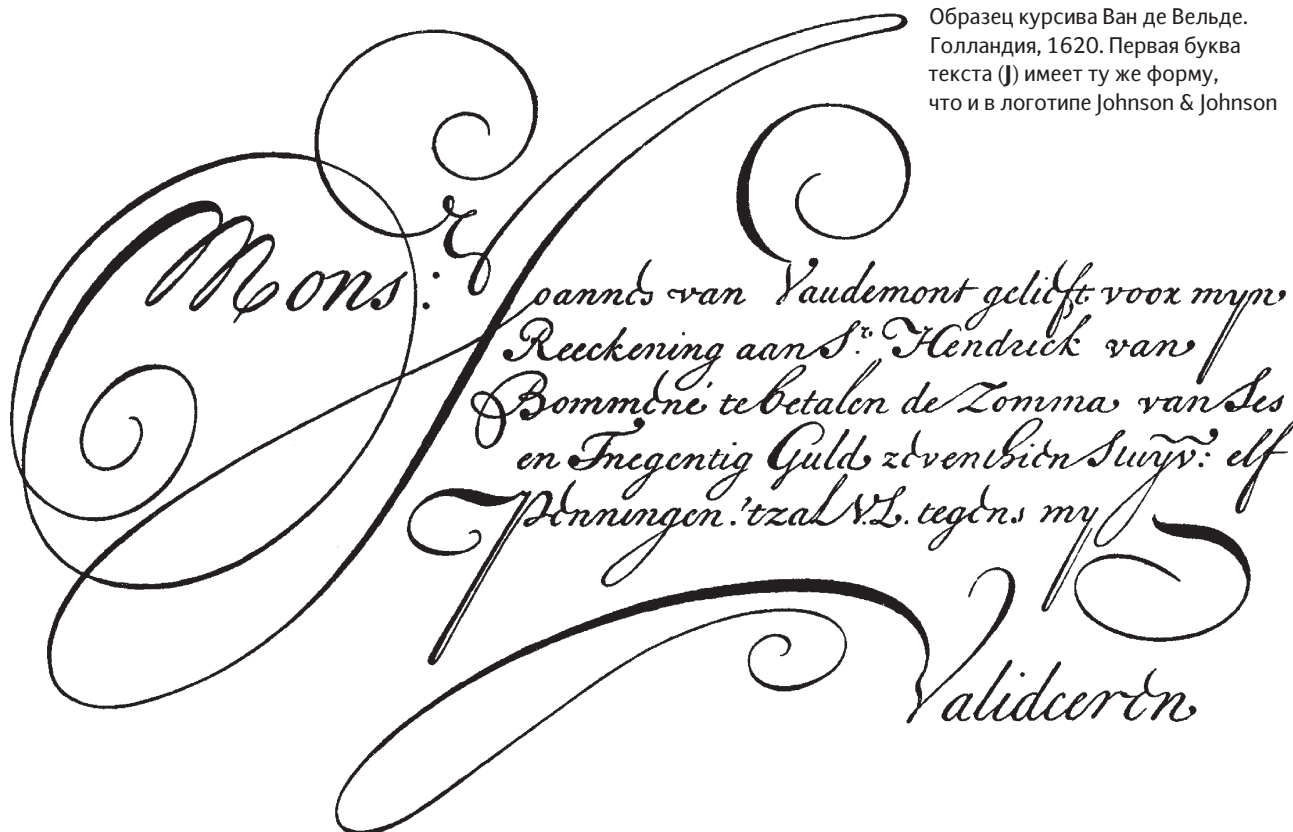 Образец курсива Ван де Вельде.
Голландия, 1620. Первая буква
текста (J) имеет ту же форму,
что и в логотипе Johnson & Johnson
Mons:r
Joannes van Vaudemont gelieft voor myn
Reeckening aan Sr. Hendrick van
Bommené te betalen de Zomma van Ses
en Tnegentig Guld zeventhien Stuyv: elf
Penningen. 'tzal V.L. tegens my
Valideeren